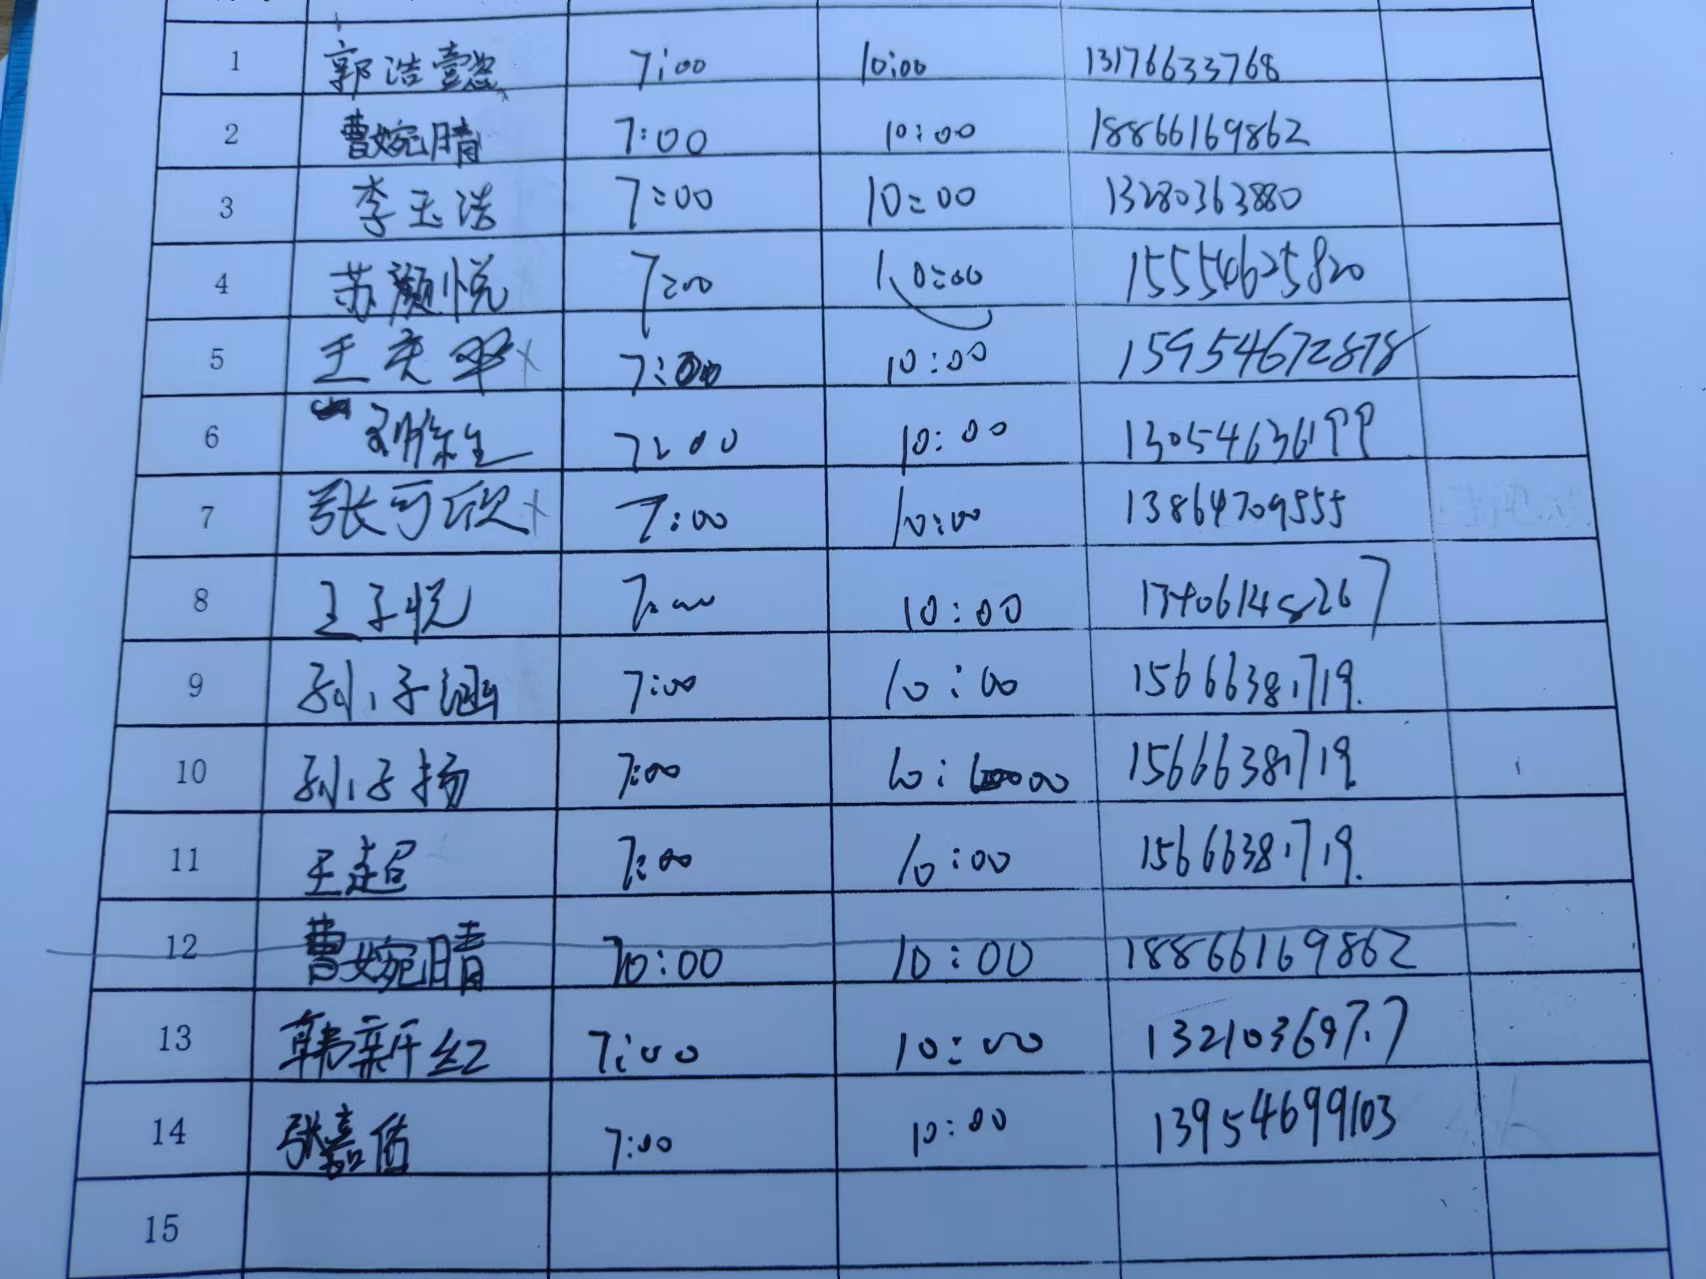 1 郭浩懿 7:00 10:00 13176633768
2 曹婉晴 7:00 10:00 18866169862
3 李玉浩 7:00 10:00 13280363880
4 苏灏悦 7:00 10:00 15554625820
5 王奕 7:00 10:00 15954672878
6 7:00 10:00 13054636199
7 张可欣 7:00 10:00 13864709555
8 王子悦 7:00 10:00 13406148267
9 孙子涵 7:00 10:00 15666381719.
10 孙子扬 7:00 10:00 15666381719
11 王超 7:00 10:00 15666381719.
12 曹婉晴 70:00 10:00 18866169862
13 韩新红 7:00 10:00
14 张嘉佑 7:00 10:00 13954699103
15